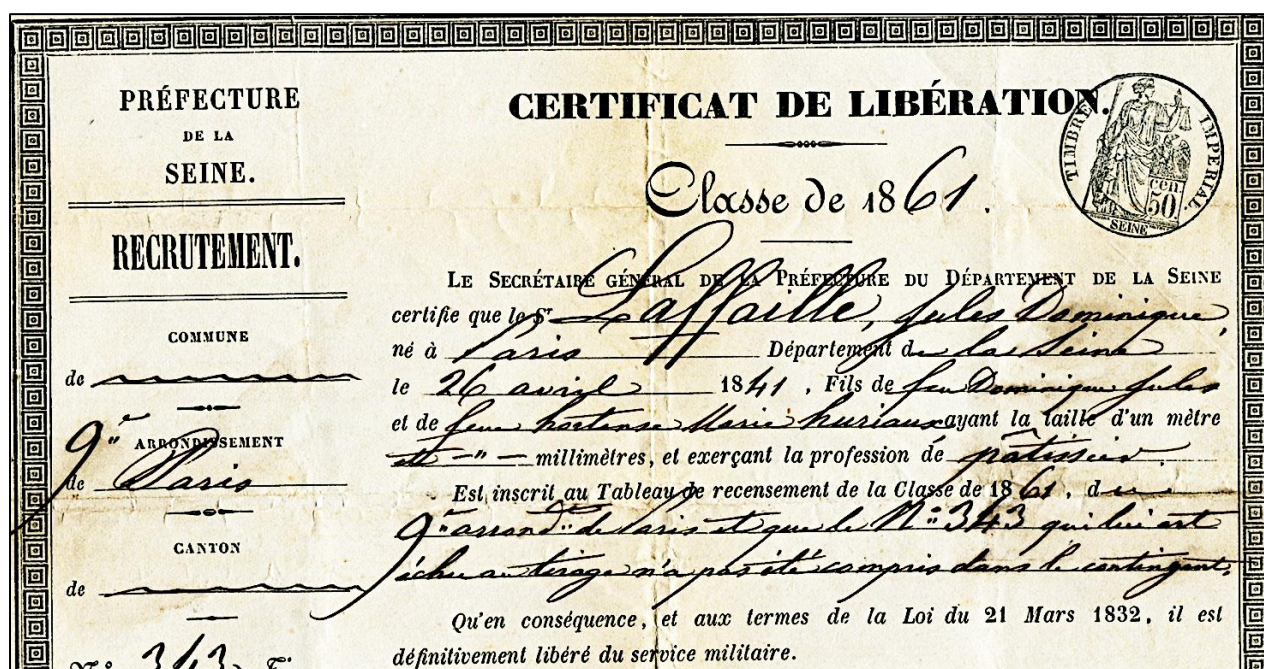 PRÉFECTURE
DE LA
SEINE.
RECRUTEMENT.
COMMUNE
de
9e ARRONDISSEMENT
de Paris
CANTON
de
N° 343
CERTIFICAT DE LIBÉRATION.
TIMBRE IMPÉRIAL
50 cen
SEINE
Classe de 1861.
LE SECRÉTAIRE GÉNÉRAL DE LA PRÉFECTURE DU DÉPARTEMENT DE LA SEINE
certifie que le Sr Laffaille, Jules Dominique
né à Paris Département de la Seine
le 26 avril 1841, Fils de feu Dominique Jules
et de feue hortense Marie huriaux ayant la taille d'un mètre
et —"— millimètres, et exerçant la profession de pâtissier.
Est inscrit au Tableau de recensement de la Classe de 1861, du
9e arrondt de Paris et que le N° 343 qui lui est
échu au tirage n'a pas été compris dans le contingent.
Qu'en conséquence, et aux termes de la Loi du 21 Mars 1832, il est
définitivement libéré du service militaire.